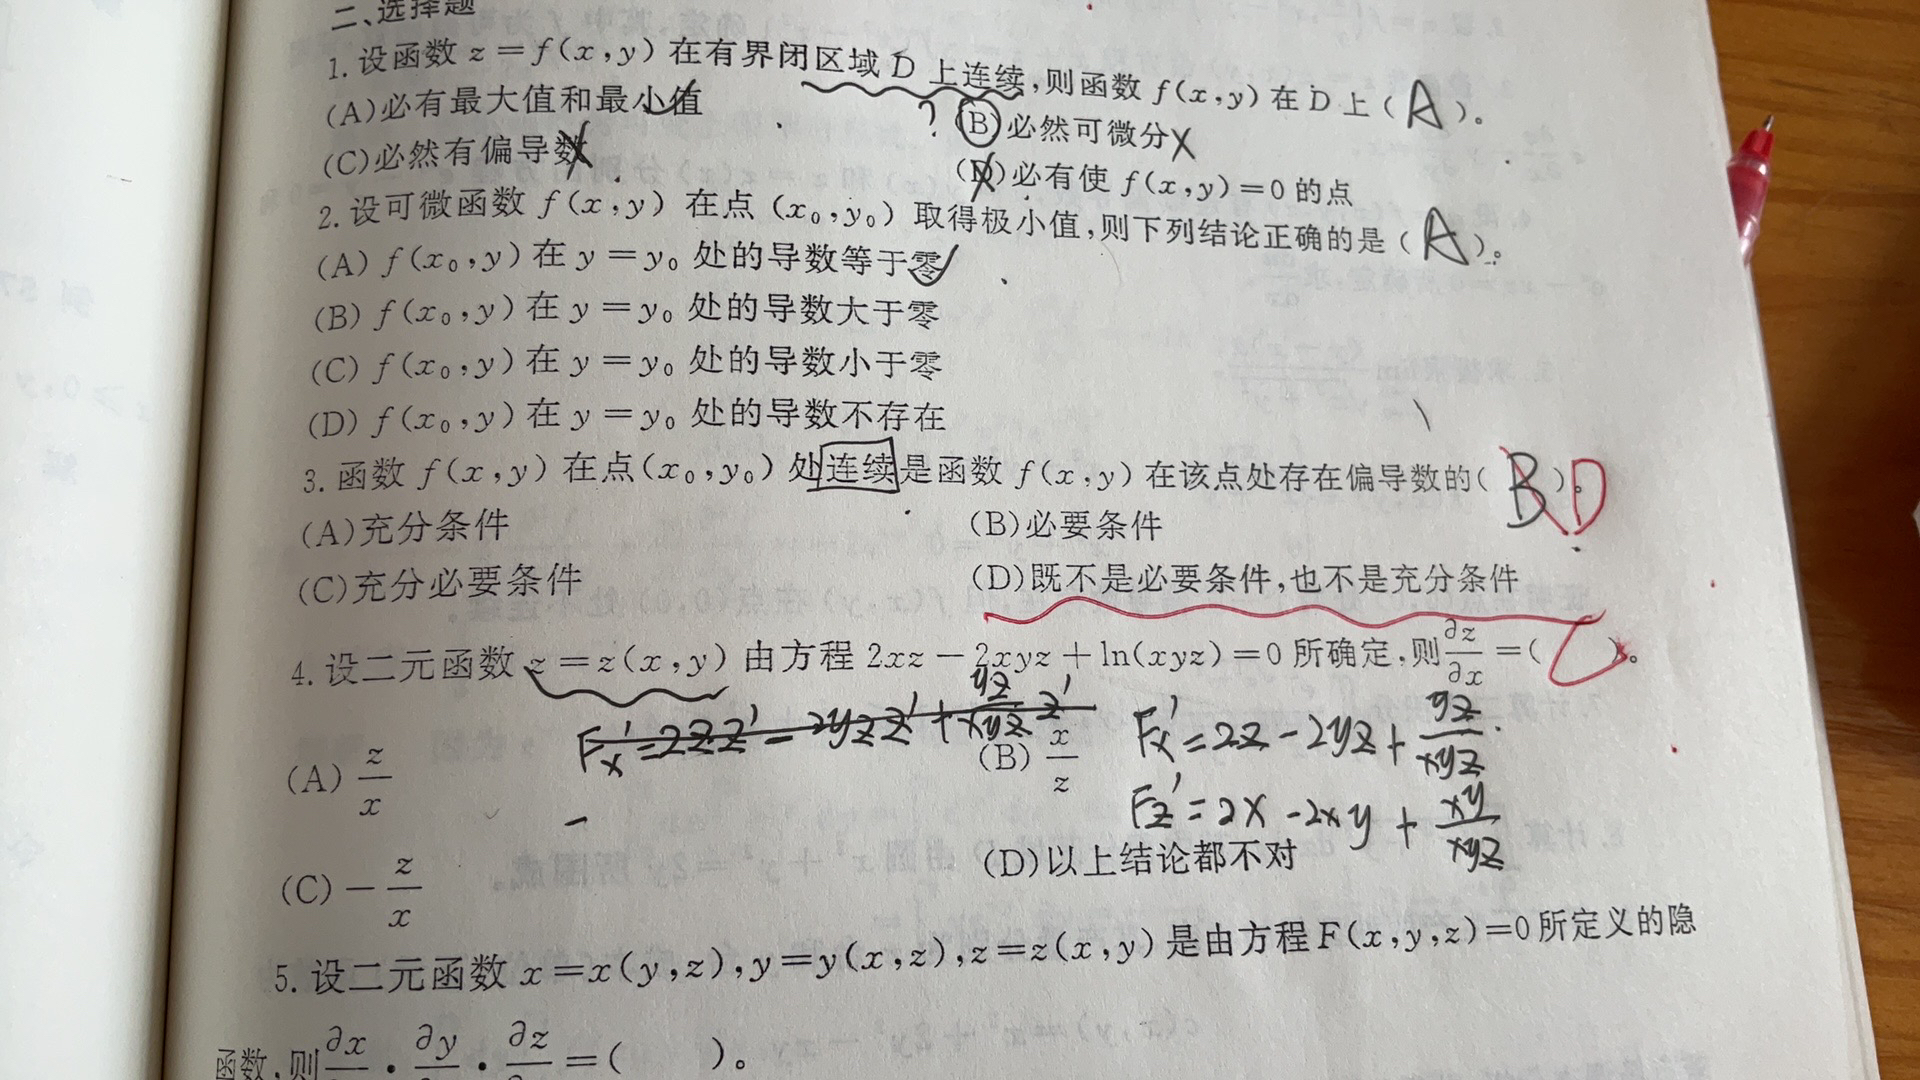 二、选择题
1. 设函数 z=f(x,y) 在有界闭区域 D 上连续,则函数 f(x,y) 在 D 上( A )。
(A)必有最大值和最小值
? (B)必然可微分
(C)必然有偏导数
(D)必有使 f(x,y)=0 的点
2. 设可微函数 f(x,y) 在点 (x₀,y₀) 取得极小值,则下列结论正确的是( A )。
(A) f(x₀,y) 在 y=y₀ 处的导数等于零
(B) f(x₀,y) 在 y=y₀ 处的导数大于零
(C) f(x₀,y) 在 y=y₀ 处的导数小于零
(D) f(x₀,y) 在 y=y₀ 处的导数不存在
3. 函数 f(x,y) 在点(x₀,y₀) 处连续是函数 f(x,y) 在该点处存在偏导数的( B )。 D
(A)充分条件 (B)必要条件
(C)充分必要条件 (D)既不是必要条件,也不是充分条件
4. 设二元函数 z=z(x,y) 由方程 2xz-2xyz+ln(xyz)=0 所确定,则 ∂z/∂x =( C )。
Fx'=2zz'-2yzz'+yz/xyz z'
Fx'=2z-2yz+yz/xyz
(A) z/x (B) x/z
Fz'=2x-2xy+xy/xyz
(C) -z/x (D)以上结论都不对
5. 设二元函数 x=x(y,z),y=y(x,z),z=z(x,y) 是由方程 F(x,y,z)=0 所定义的隐
函数,则 ∂x · ∂y · ∂z =( )。